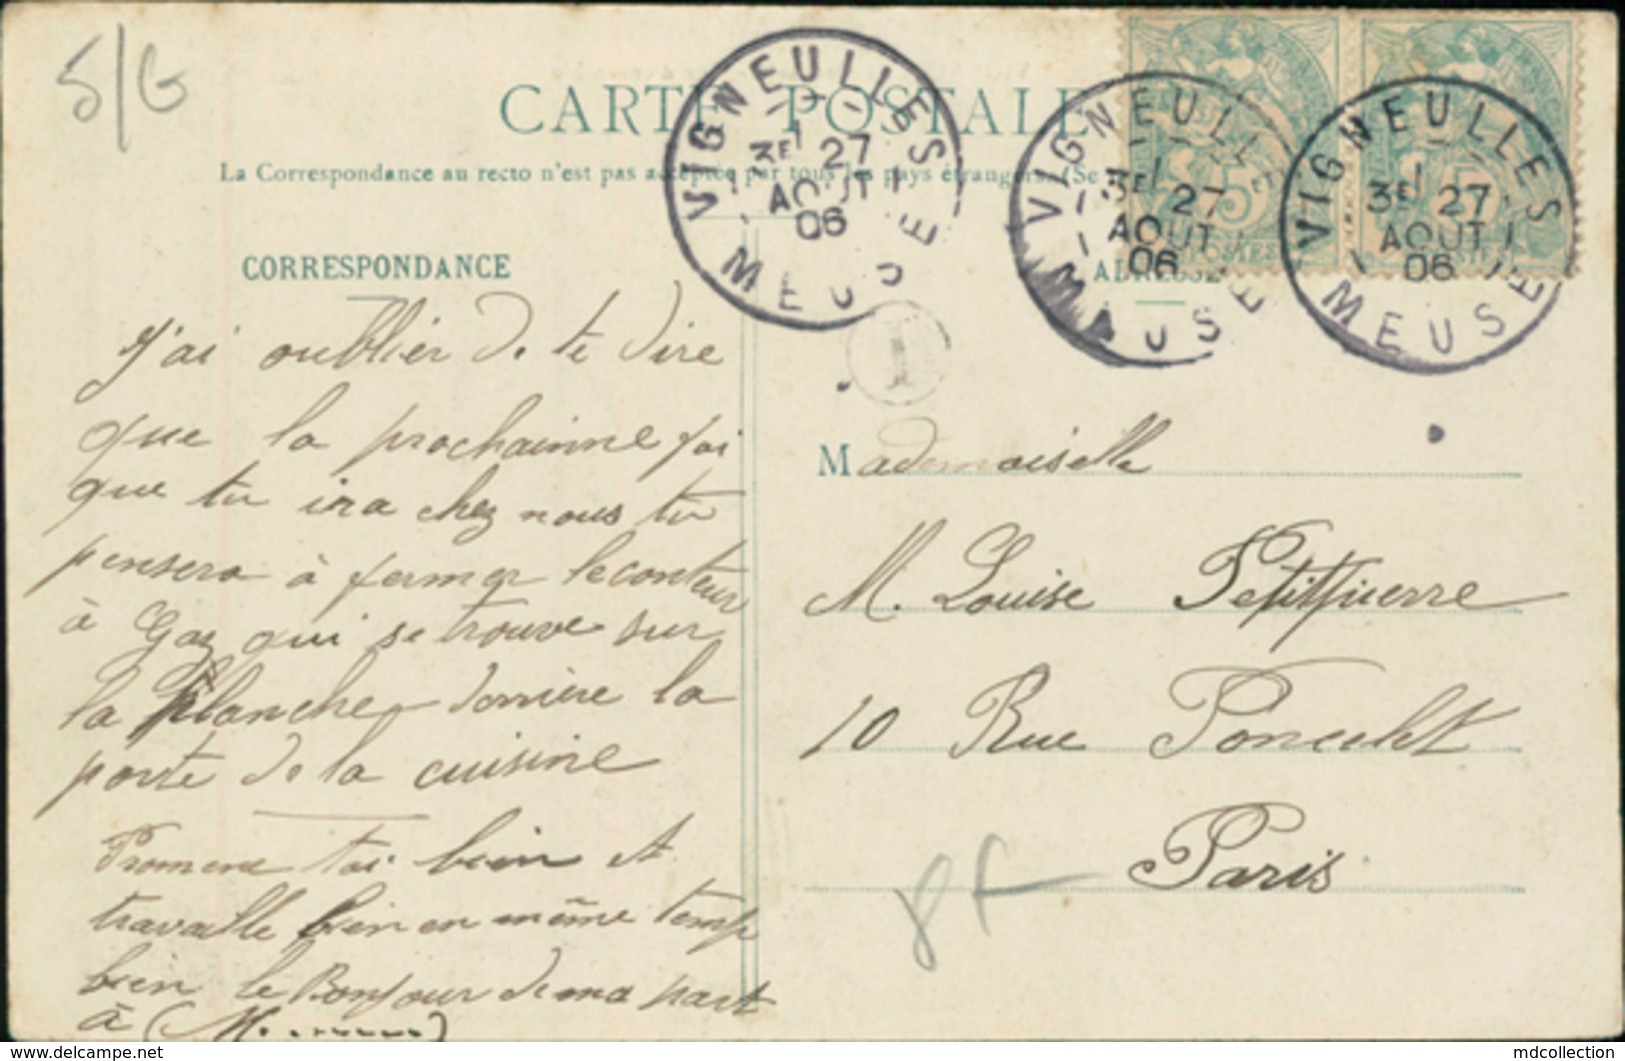 5/G
CARTE POSTALE
La Correspondance au recto n'est pas acceptée par tous les pays étrangers. (Se
VIGNEULLES
3E 27
AOUT
06
MEUSE
VIGNEULL
3E 27
AOUT
06
MEUSE
VIGNEULLES
3E 27
AOUT
06
MEUSE
CORRESPONDANCE
ADRESSE
J'ai oublier de te dire
que la prochainne foi
que tu ira chez nous tu
pensera à fermer leconteur
à Gaz qui se trouve sur
la planche derrière la
porte de la cuisine
Promene toi bien et
travaille bien en même temp
bien le Bonjour de ma part
à (M. ........)
Mademoiselle
M. Louise Petitpierre
10 Rue Poncelet
Paris
8F
mdcollection
http://www.delcampe.net